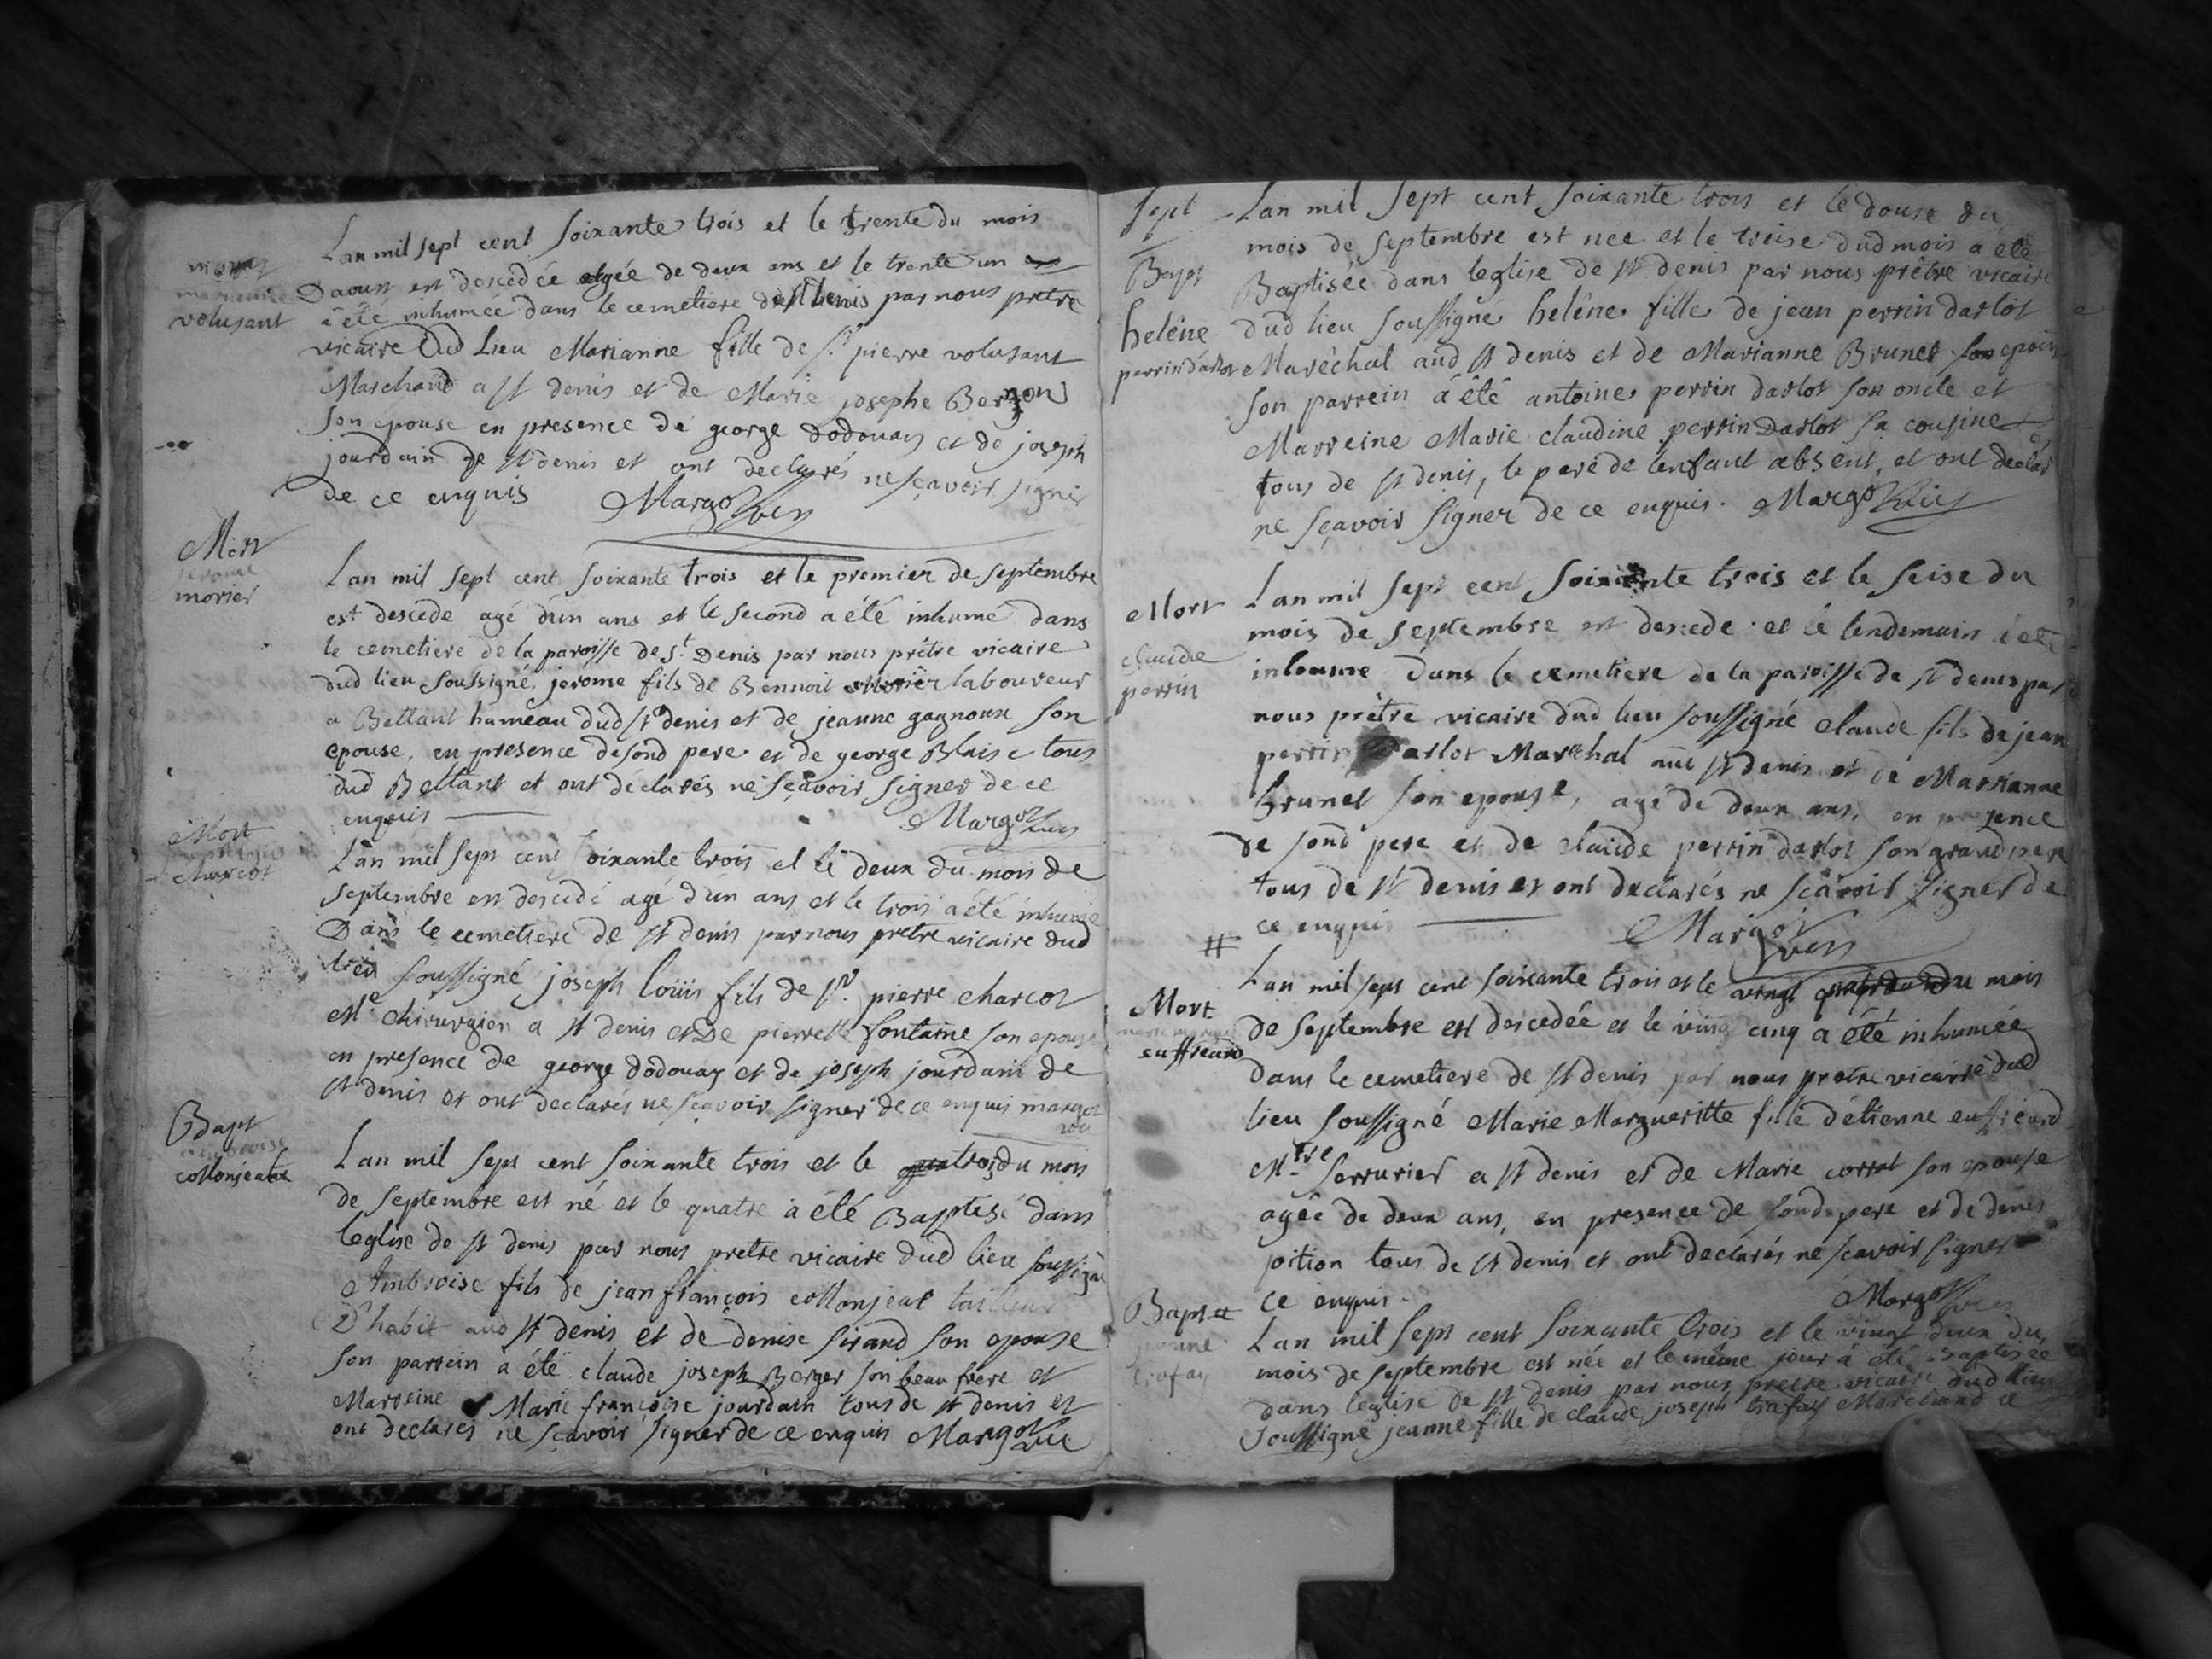 Lan mil sept cent soixante trois et le trente du mois
Daoust est descedée agée de deux ans et le trente un
volusant
a été inhumée dans le cemetiere de st denis par nous pretre
vicaire dud Lieu Marianne fille de sr pierre volusant
Marchand a st denis et de Marie josephe
son epouse en presence de george dodouay et de joseph
jourdain de st denis et ont declarés ne sçavoir signer
de ce enquis Margot vic
Mort
morier
Lan mil sept cent soixante trois et le premier de septembre
est descede agé d'un ans et le second a été inhumé dans
le cemetiere de la paroisse de st Denis par nous prêtre vicaire
dud lieu soussigné, jerome fils de Bennoit Morier laboureur
a Bettant hameau dud st denis et de jeanne gagnoux son
epouse, en presence desond pere et de george Blaise tous
dud Bettant et ont declarés ne sçavoir signer de ce
enquis Margot vic
Mort
charcot
Lan mil sept cent soixante trois et le deux du mois de
septembre est descedé agé d'un ans et le trois a été inhumé
Dans le cemetiere de st denis par nous pretre vicaire dud
lieu soussigné joseph loüis fils de sr. pierre charcot
Me. chirurgien a st denis et De pierrette fontaine son epouse
en presence de george dodouay et de joseph jourdain de
st denis et ont declarés ne sçavoir signer de ce enquis margot
vic
Bapt
collonjeat
Lan mil sept cent soixante trois et le trois du mois
de septembre est né et le quatre a été Baptisé dans
leglise de st denis par nous pretre vicaire dud lieu soussigné
Ambroise fils de jean françois collonjeat tailleur
D'habit aud st denis et de denise sirand son epouse
son parrein a été claude joseph Berger son beau frere et
Marreine Marie françoise jourdain tous de st denis et
ont declarés ne sçavoir signer de ce enquis Margot vic
sept
Bapt
heléne
perrin darlot
Lan mil sept cent soixante trois et le douse du
mois de septembre est nee et le treise dud mois a été
Baptisée dans leglise de st denis par nous prêtre vicaire
dud lieu soussigné heléne fille de jean perrin darlot
Maréchal aud st denis et de Marianne Brunet son epouse
son parrein a été antoine perrin darlot son oncle et
Marreine Marie claudine perrin Darlot sa cousine
tous de st denis, le pere de lenfant absent, et ont declar
ne sçavoir signer de ce enquis. Margot vic
Mort
claude
perrin
Lan mil sept cent soixante trois et le seise du
mois de septembre est descede et le lendemain a été
inhumé dans le cemetiere de la paroisse de st denis par
nous prêtre vicaire dud lieu soussigné claude fils de jean
perrin Darlot Maréchal aud st denis et de Marianne
brunet son epouse, agé de deux ans, en presence
de sond pere et de claude perrin darlot son grand pere
tous de st denis et ont declarés ne sçavoir signer de
ce enquis Margot vic
#
Mort
euffreard
Lan mil sept cent soixante trois et le vingt du mois
de septembre est descedée et le vingt cinq a été inhumée
dans le cemetiere de st denis par nous pretre vicaire dud
lieu soussigné Marie Margueritte fille d'étienne euffreard
Mtre serrurier a st denis et de Marie corrat son epouse
agée de deux ans, en presence de sond pere et de denis
poition tous de st denis et ont declarés ne sçavoir signer
ce enquis. Margot vic
Bapt #
Lan mil sept cent soixante trois et le vingt deux du
mois de septembre est née et le même jour a été Baptisée
dans leglise de st denis par nous pretre vicaire dud lieu
soussigné jeanne fille de claude joseph trafay Marchand a